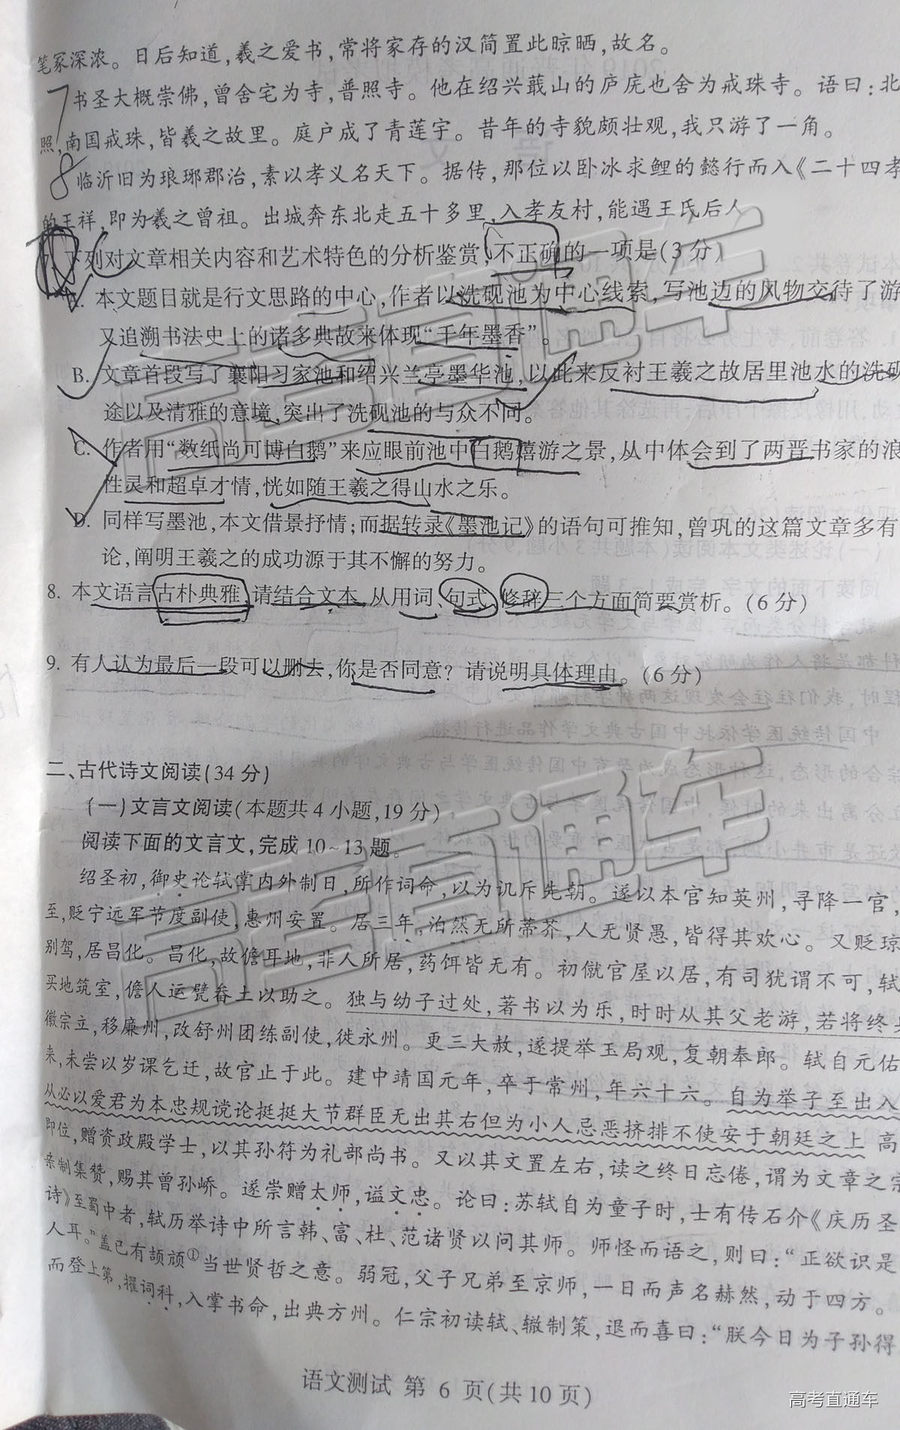 笔冢深浓。日后知道,羲之爱书,常将家存的汉简置此晾晒,故名。
7 书圣大概崇佛,曾舍宅为寺,普照寺。他在绍兴蕺山的庐庑也舍为戒珠寺。语曰:北
照,南国戒珠,皆羲之故里。庭户成了青莲宇。昔年的寺貌颇壮观,我只游了一角。
8 临沂旧为琅琊郡治,素以孝义名天下。据传,那位以卧冰求鲤的懿行而入《二十四孝
的王祥,即为羲之曾祖。出城奔东北走五十多里,入孝友村,能遇王氏后人
下列对文章相关内容和艺术特色的分析鉴赏,不正确的一项是(3分)
本文题目就是行文思路的中心,作者以洗砚池为中心线索,写池边的风物交待了游
又追溯书法史上的诸多典故来体现“千年墨香”。
B. 文章首段写了襄阳习家池和绍兴兰亭墨华池,以此来反衬王羲之故居里池水的洗砚
途以及清雅的意境,突出了洗砚池的与众不同。
C. 作者用“数纸尚可博白鹅”来应眼前池中白鹅嬉游之景,从中体会到了两晋书家的浪
性灵和超卓才情,恍如随王羲之得山水之乐。
D. 同样写墨池,本文借景抒情;而据转录《墨池记》的语句可推知,曾巩的这篇文章多有
论,阐明王羲之的成功源于其不懈的努力。
8. 本文语言古朴典雅,请结合文本,从用词、句式、修辞三个方面简要赏析。(6分)
9. 有人认为最后一段可以删去,你是否同意？请说明具体理由。(6分)
二、古代诗文阅读(34分)
(一)文言文阅读(本题共4小题,19分)
阅读下面的文言文,完成10~13题。
绍圣初,御史论轼掌内外制日,所作词命,以为讥斥先朝。遂以本官知英州,寻降一官,
至,贬宁远军节度副使,惠州安置。居三年,泊然无所蒂芥,人无贤愚,皆得其欢心。又贬琼
别驾,居昌化。昌化,故儋耳地,非人所居,药饵皆无有。初僦官屋以居,有司犹谓不可,轼
买地筑室,儋人运甓畚土以助之。独与幼子过处,著书以为乐,时时从其父老游,若将终身
徽宗立,移廉州,改舒州团练副使,徙永州。更三大赦,遂提举玉局观,复朝奉郎。轼自元佑
来,未尝以岁课乞迁,故官止于此。建中靖国元年,卒于常州,年六十六。自为举子至出入
从必以爱君为本忠规谠论挺挺大节群臣无出其右但为小人忌恶挤排不使安于朝廷之上 高
即位,赠资政殿学士,以其孙符为礼部尚书。又以其文置左右,读之终日忘倦,谓为文章之宗
亲制集赞,赐其曾孙峤。遂崇赠太师,谥文忠。论曰:苏轼自为童子时,士有传石介《庆历圣
诗》至蜀中者,轼历举诗中所言韩、富、杜、范诸贤以问其师。师怪而语之,则曰:“正欲识是
人耳。”盖已有颉颃①当世贤哲之意。弱冠,父子兄弟至京师,一日而声名赫然,动于四方。
而登上第,擢词科,入掌书命,出典方州。仁宗初读轼、辙制策,退而喜曰:“朕今日为子孙得
语文测试 第 6 页(共10页)
高考直通车